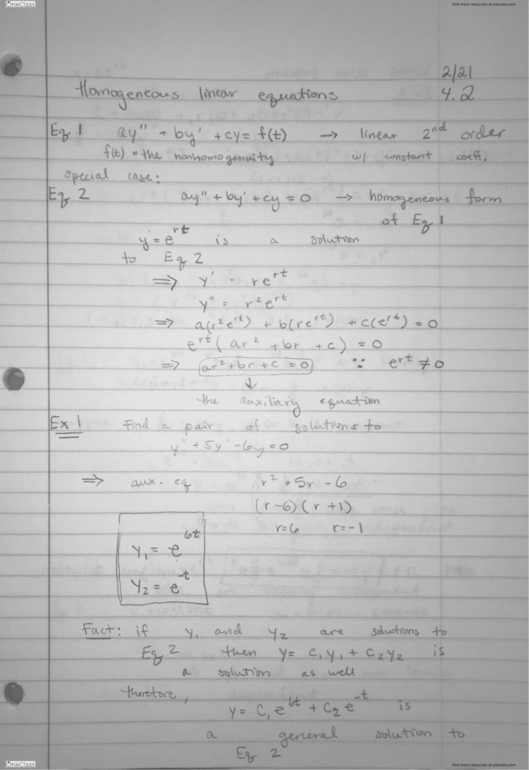 OneClass
find more resources at oneclass.com
2/21
Homogeneous linear equations 4.2
Eq 1 ay" + by' + cy = f(t) → linear 2nd order
f(t) = the nonhomogenuity w/ constant coeff.
special case:
Eq 2 ay" + by' + cy = 0 → homogeneous form
of Eq 1
y = e^rt is a solution
to Eq 2
⇒ y' = re^rt
y" = r²e^rt
⇒ a(r²e^rt) + b(re^rt) + c(e^rt) = 0
e^rt (ar² + br + c) = 0
⇒ ar² + br + c = 0 ∵ e^rt ≠ 0
↓
the auxiliary equation
Ex 1 Find a pair of solutions to
y" + 5y' - 6y = 0
⇒ aux. eq r² + 5r - 6
(r-6)(r+1)
r=6 r=-1
y₁ = e^6t
y₂ = e^-t
Fact: if y₁ and y₂ are solutions to
Eq 2 then y = c₁y₁ + c₂y₂ is
a solution as well
therefore,
y = c₁e^6t + c₂e^-t is
a general solution to
Eq 2
OneClass
find more resources at oneclass.com